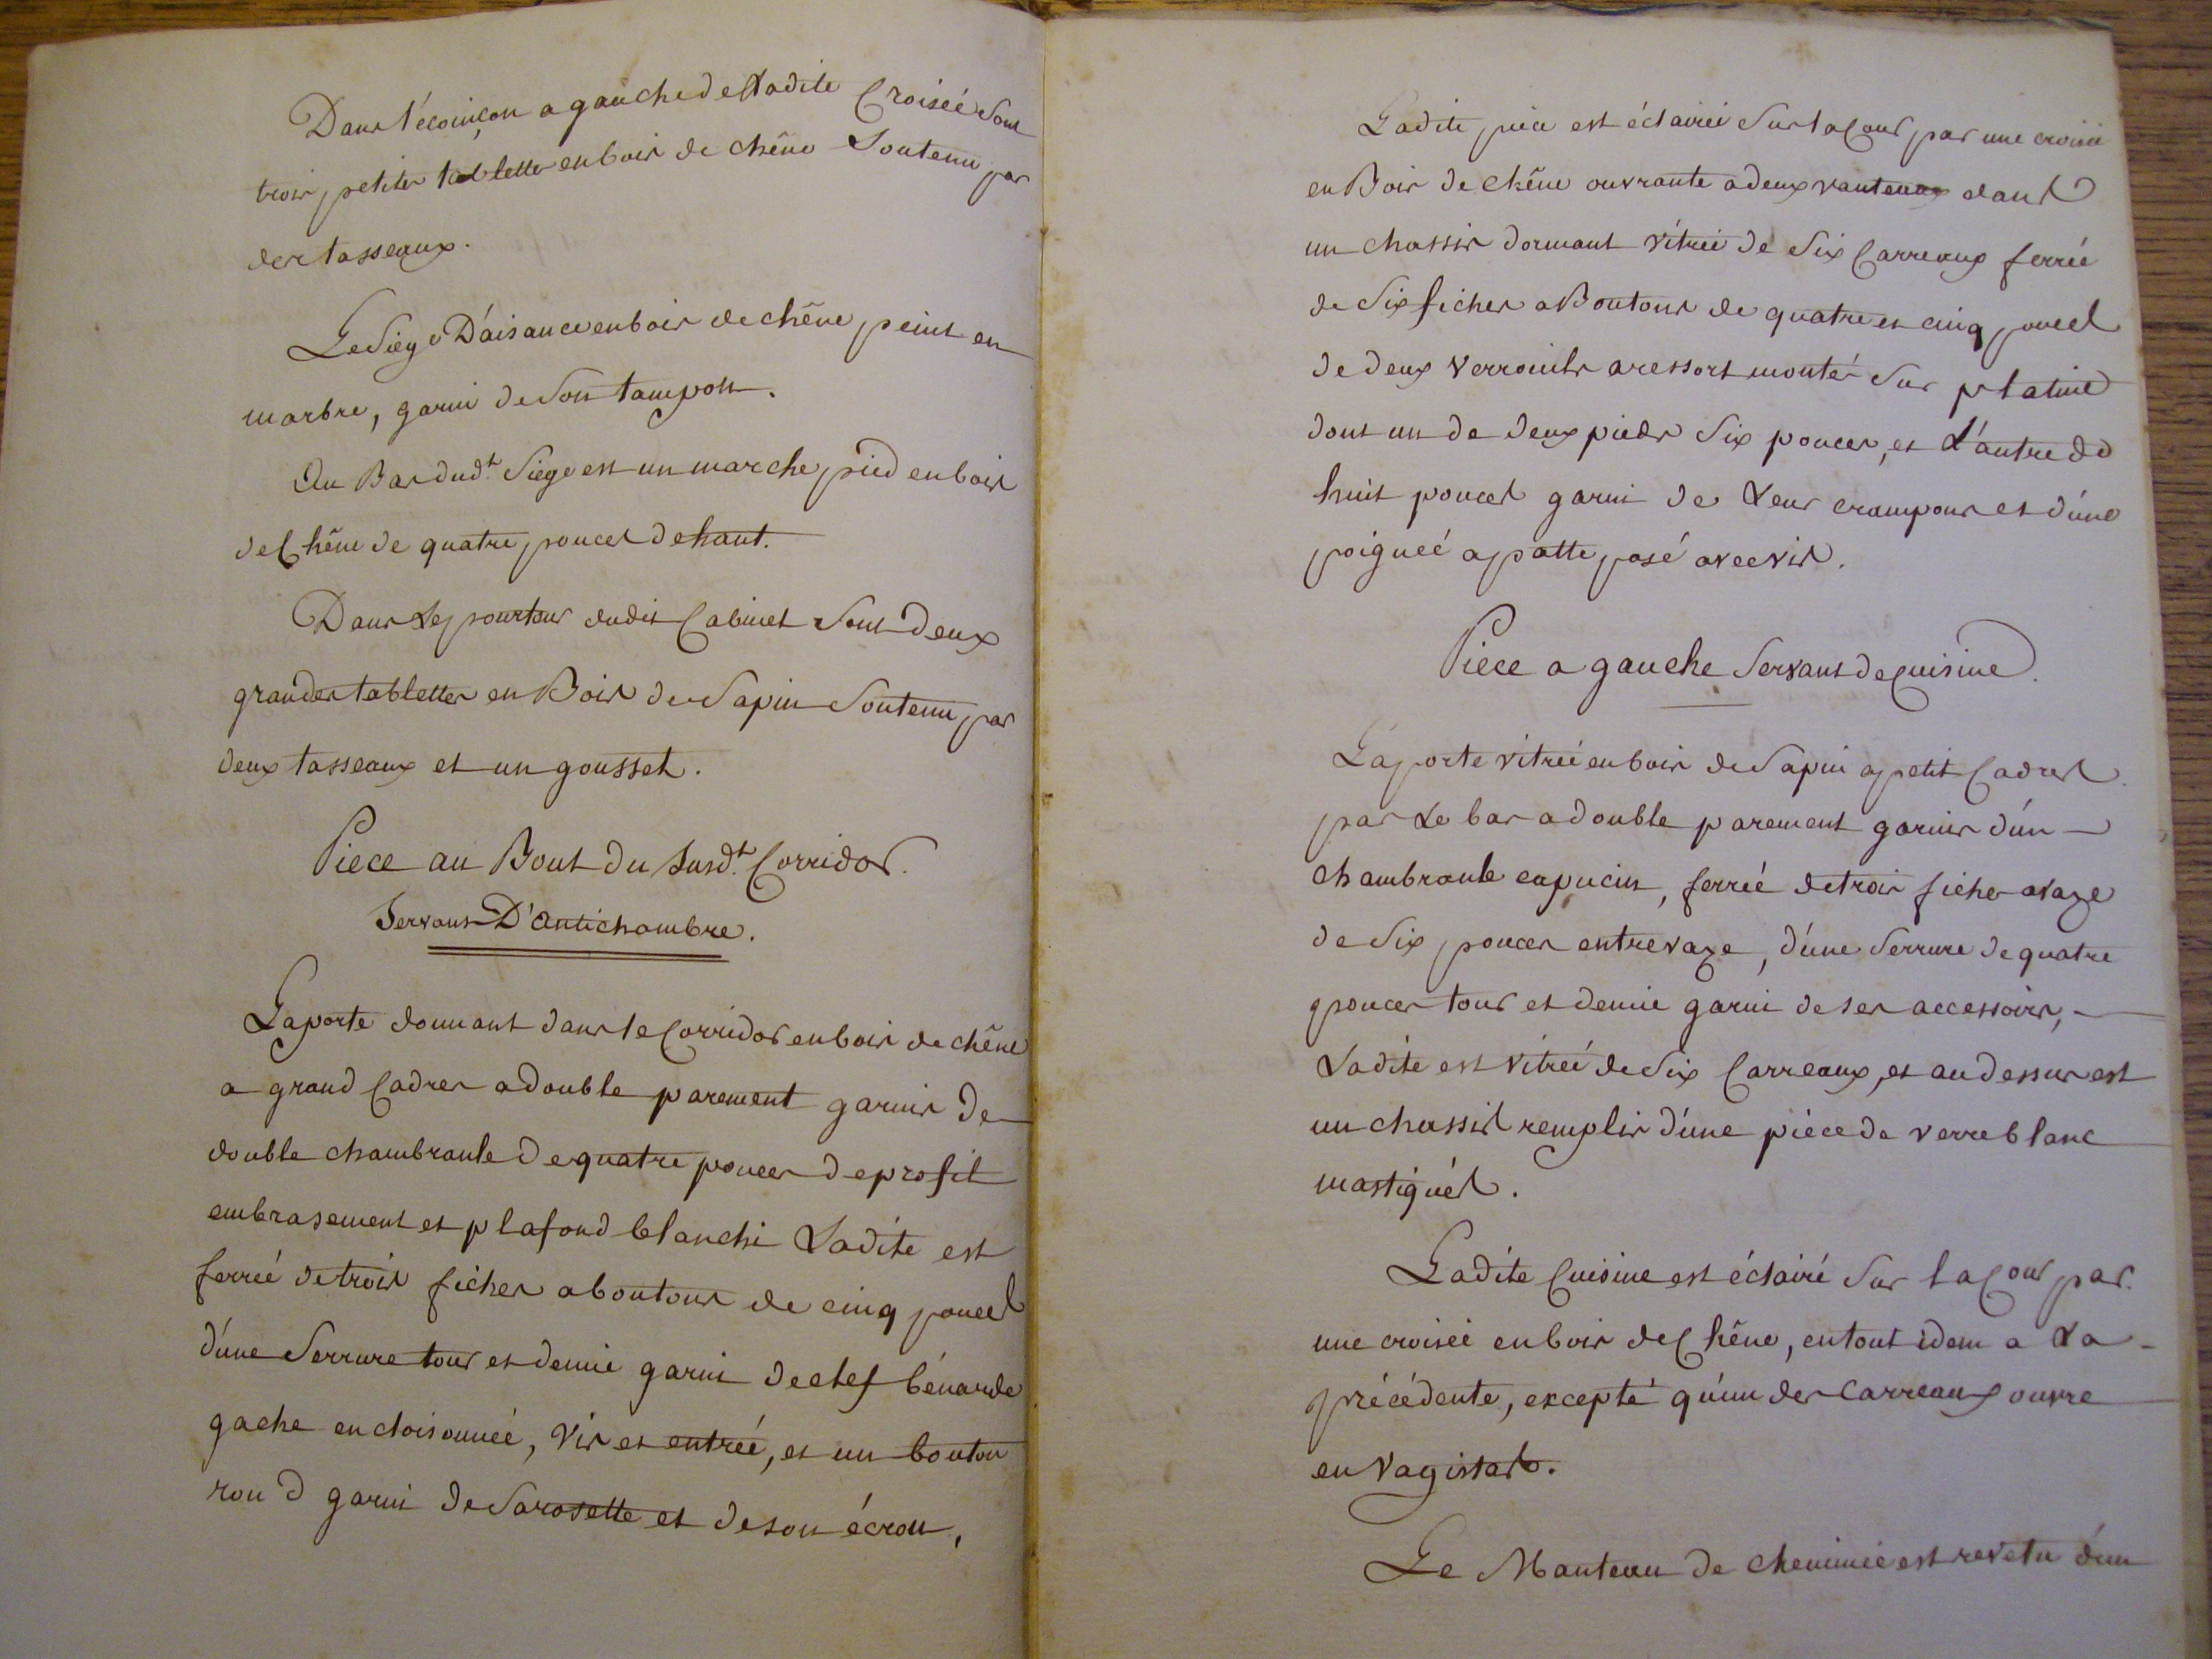 Dans l'écoinçon a gauche de Ladite Croiseé Sont
trois petites tablettes en bois de chêne Soutenu par
des tasseaux.
Le Siége D'aisance en bois de chêne peint en
marbre, garni de Son tampon.
Au Bas dud.t Siége est un marche pied en bois
de Chêne de quatre pouces de haut.
Dans Le pourtour dudit Cabinet Sont Deux
grandes tablettes en Bois de Sapin Soutenu par
deux tasseaux et un gousset.
Piece au Bout Du Susd.t Corridor.
Servant D'antichambre.
La porte donnant dans le Corridor en bois de chêne
a grand Cadres a double parement garnis de
double chambranle de quatre pouces de profil
embrasement et plafond blanchi Ladite est
ferreé de trois fiches a boutons de cinq pouces
d'une Serrure tour et demie garni de clef bénarde
gache encloisonneé, Vis et entreé, et un bouton
rond garni de Sa rosette et de son écrou,
Ladite piéce est éclaireé Sur la Cour par une croiseé
en Bois de chêne ouvrante a deux vanteaux dans
un chassis dormant vitreé de Six Carreaux ferreé
de Six fiches a Boutons de quatre et cinq pouces
de deux verrouils a ressort monté Sur platine
dont un de deux pieds Six pouces, et L'autre de
huit pouces garni de Leur crampons et d'une
poigneé a patte posé avec vis.
Piece a gauche Servant de Cuisine.
La porte vitreé en bois de Sapin a petit Cadres
par Le bas a double parement garnis d'un
chambranle capucin, ferreé de trois fiches a vaze
de Six pouces entre vaze, d'une Serrure de quatre
pouces tour et demie garni de ses accessoirs,
Ladite est vitreé de Six Carreaux, et au dessus est
un chassis remplis d'une piéce de verre blanc
mastiqués.
Ladite Cuisine est éclairé Sur la Cour par
une croiseé en bois de Chêne, en tout idem a La
précédente, excepté qu'un des Carreaux ouvre
en Vagistas.
Le Manteau de Chemineé est revetu d'un